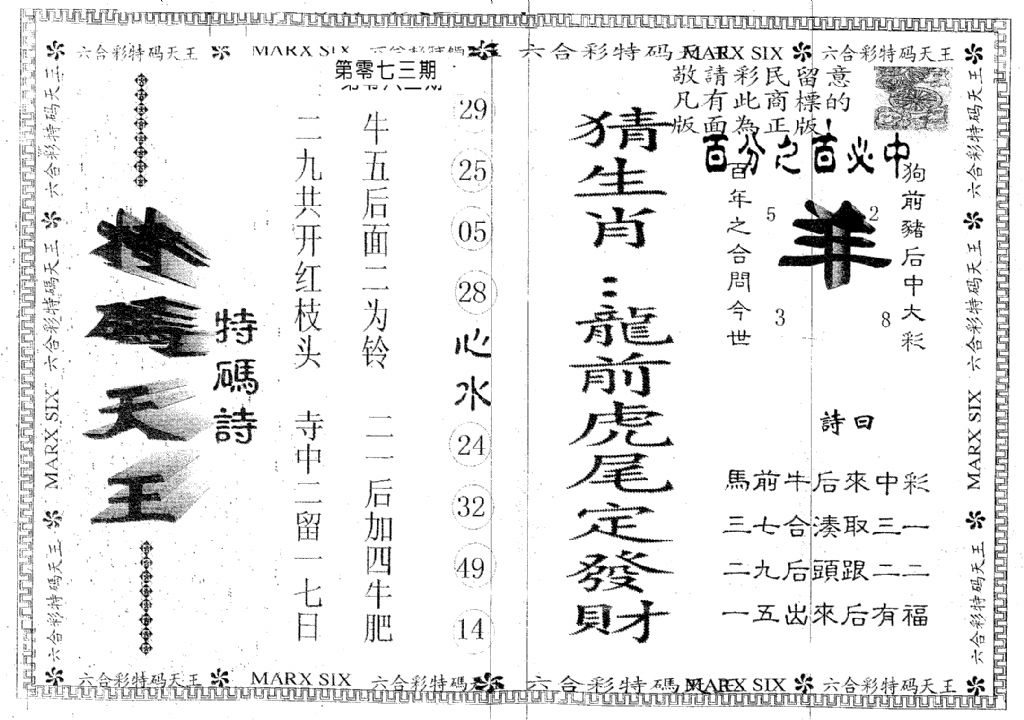 六合彩特码天王
MARX SIX
六合彩特码天王
MARX SIX
六合彩特码天王
第零七三期
敬請彩民留意
凡有此商標的
版面為正版!
百分之百必中
特碼天王
特碼詩
二九共开红枝头
寺中二留一七日
牛五后面二为铃
二一后加四牛肥
29
25
05
28
心水
24
32
49
14
猜生肖:龍前虎尾定發財
百年之合問今世
狗前豬后中大彩
羊
5
2
3
8
詩曰
馬前牛后來中彩
三七合湊取三一
二九后頭跟二二
一五出來后有福
六合彩特码天王
六合彩特码天王
MARX SIX
六合彩特码天王
六合彩特码天王
六合彩特码天王
MARX SIX
六合彩特码天王
六合彩特码天王
MARX SIX
六合彩特码天王
六合彩特碼
MARX SIX
六合彩特码天王